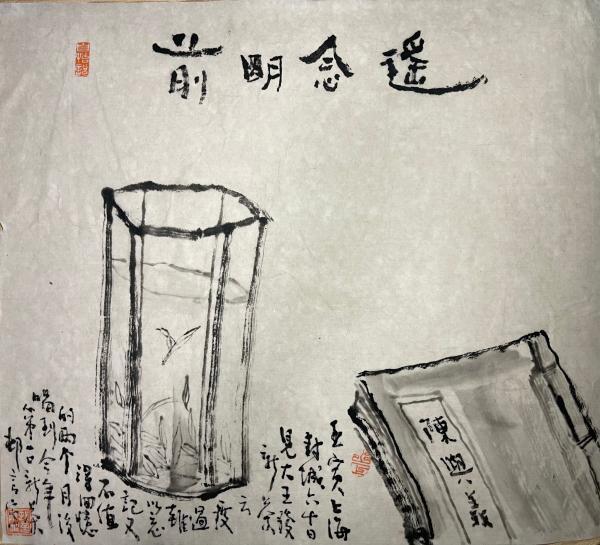 遥念明前
陳與義
壬寅上海
封城六十日
見大王發
新茶
云
度
過
難
以忘
記又
不值
得回憶
的两个月後
喝到今年
第一口新茶
邨言